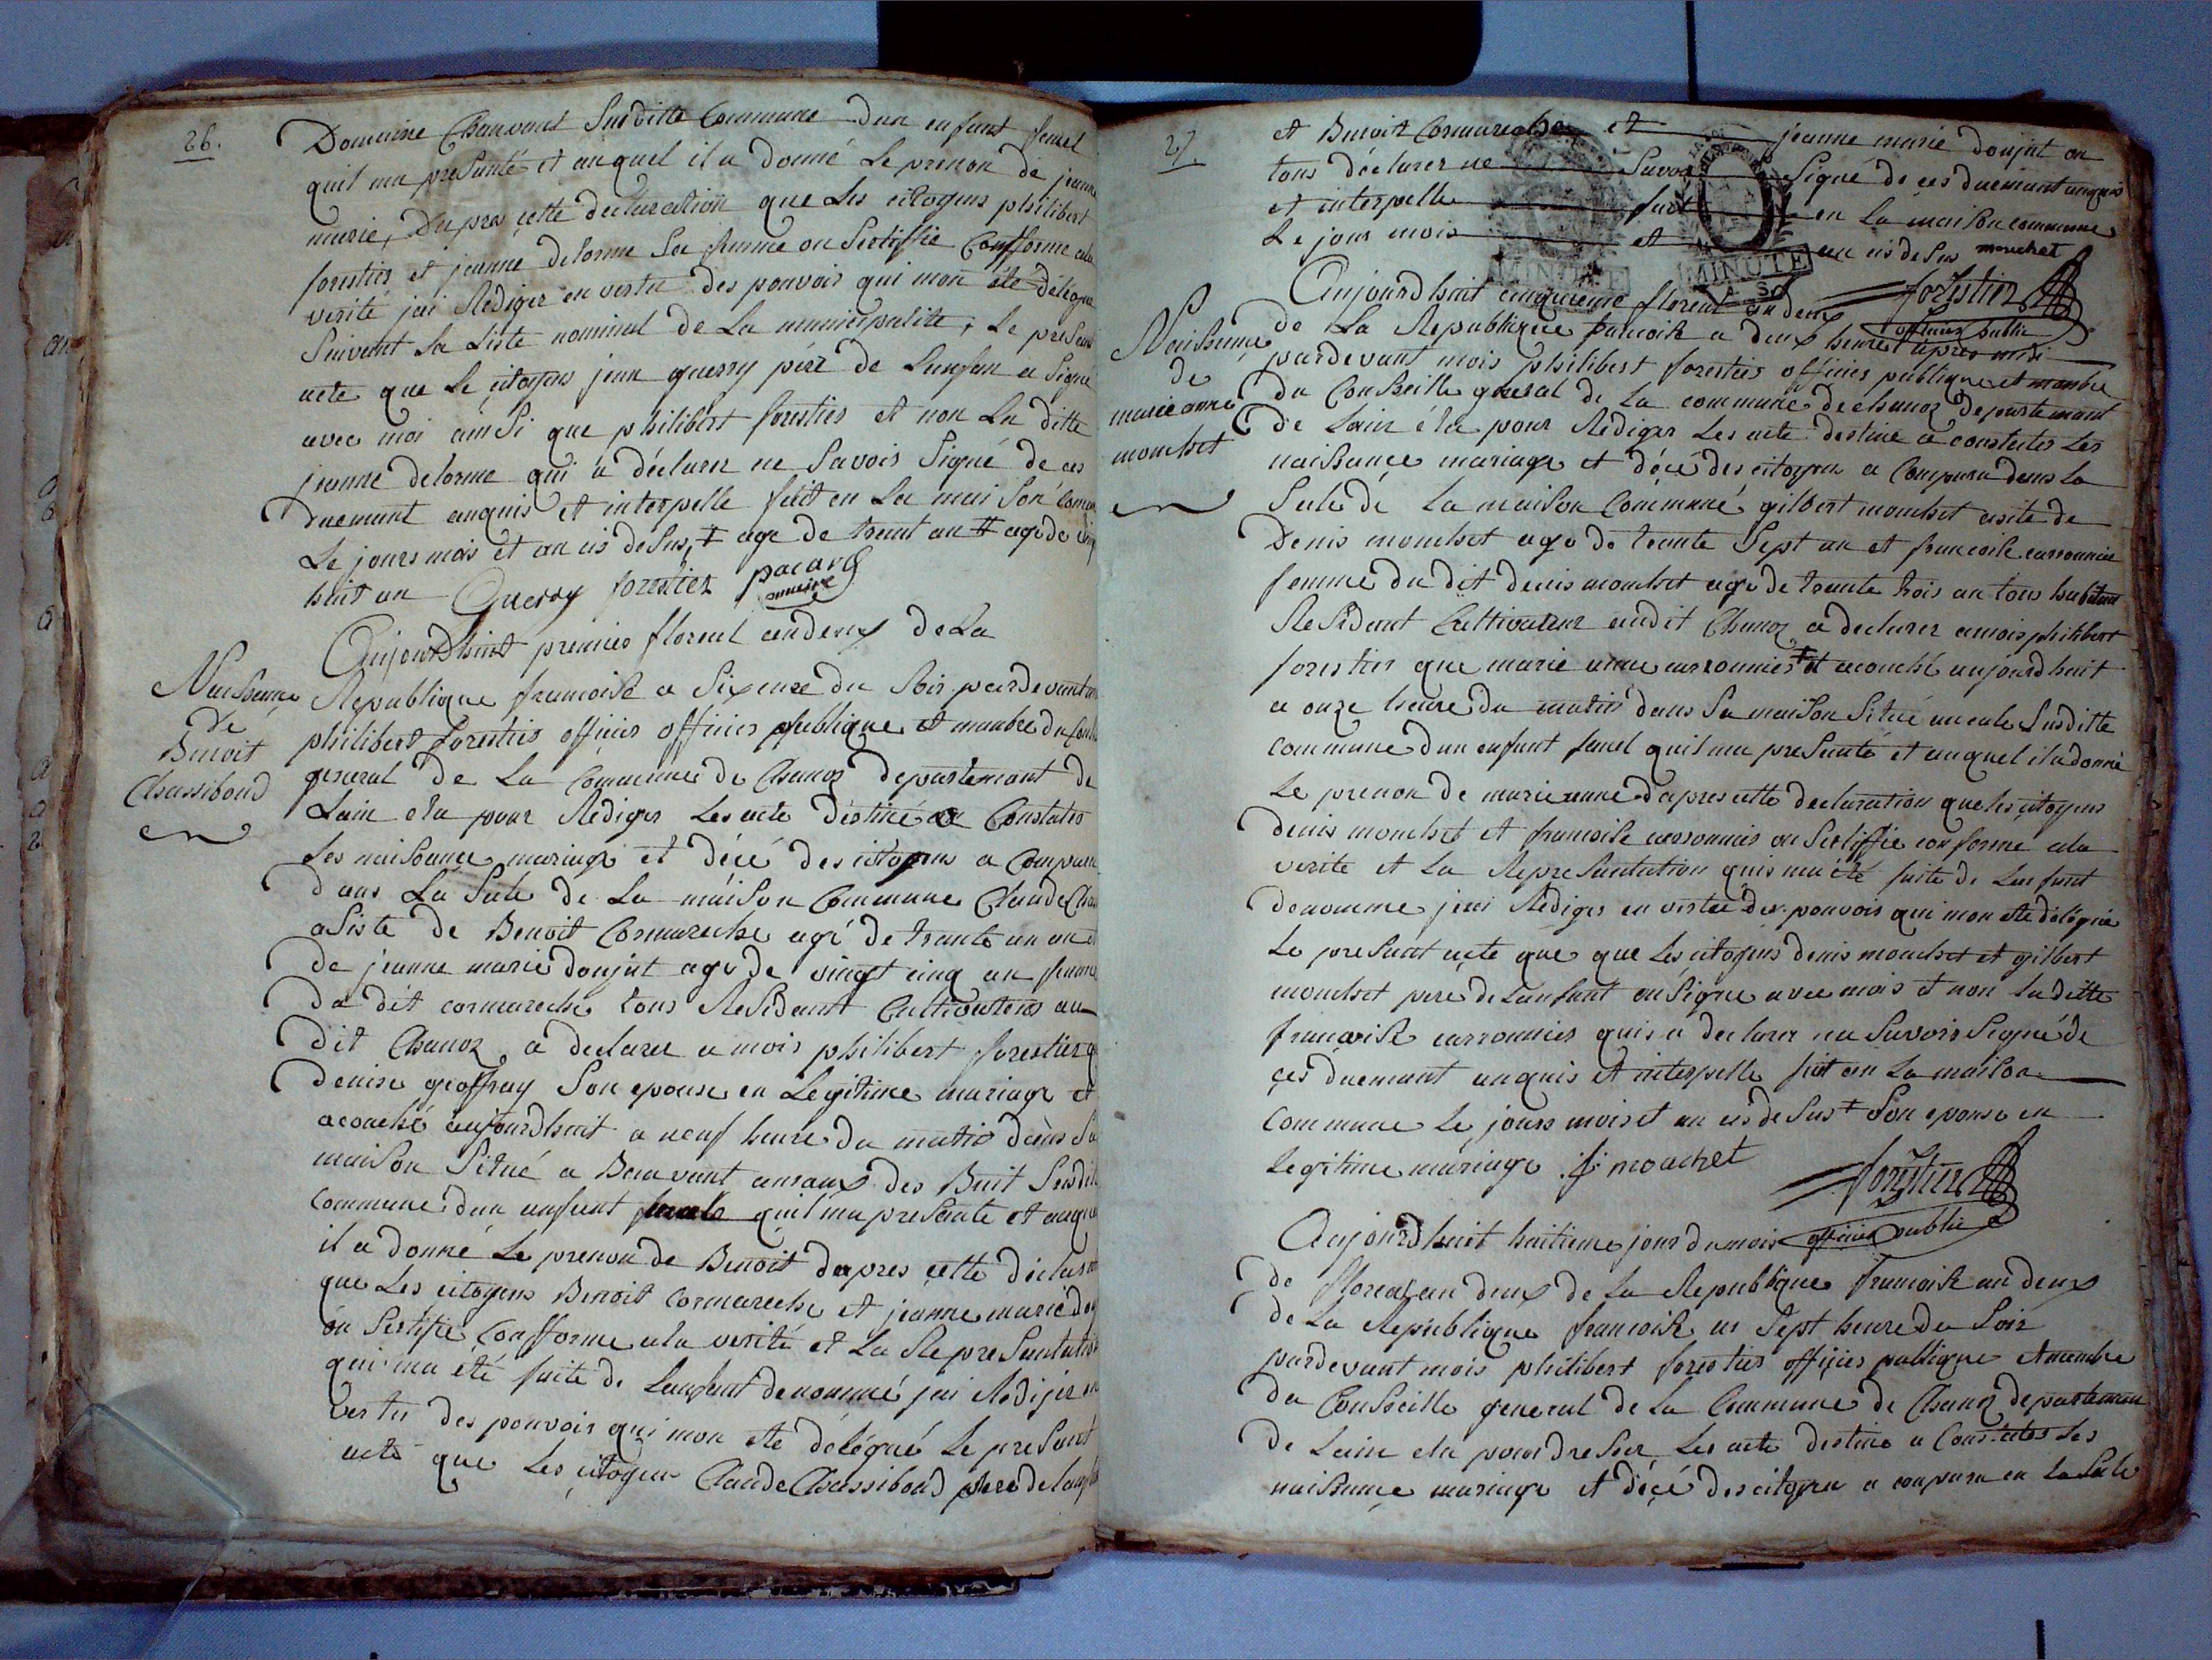 26.
Domaine Chauvant Susditte Commune dun enfant femel
quil ma presanté et auquel il a donné Le prenon de jeanne
marie, Dapres cette declaration que Les citoyens philibert
forestier et jeanne delorme Sa femme on Sertiffie Confforme ala
verité jai Rediger en vertu des pouvoir qui mon été délégue
Suivant La Liste nominal de La municipalité, Le presant
acte que Le citoyens jean querry pére de Lenfan a Signé
avec moi ainsi que philibert forestier et non La ditte
jeanne delorme qui a déclarer ne Savois Signé de ces
duemant anquis et interpelle fait en La maison Comune
Le jours mois et an cis desus, ‡ age de trent an # age de vingt
huit an Querry forestier pacard
maire
Naissance
de
Benoit
Chassiboud
Aujourdhuit premier floreal an deux de La
Republique francoise a Six eure du Soir pardevant moi
philibert forestier officier officier publique et manbre du Conseille
general de La Commune de Chanoz departemant de
Lain elu pour Rediger Les acte déstiné a Constater
Les naissance mariage et décé des citoyens a Comparu
dans La Sale de La maison Commune Claude Chassiboud
asisté de Benoit Cormareche agé de trante un an et
de jeanne marie donjat age de vingt cinq an femme
du dit cormareche tous Residant Cultivateur au
dit Chanoz a declarer a mois philibert forestier que
denise geoffray Son epouse en Legitime mariage et
acouché aujourdhuit a neuf heure du matin dans Sa
maison Situé a Beauvant des Buit Susditte
Commune dun anfant quil ma presanté et auquel
il a donné Le prenon de Benoit dapres cette déclaration
que Les citoyens Benoit Cormareche et jeanne marie donjat
on Sertifie Confforme ala verité et La Represantation
qui ma été faite de Lanfant denommé jai Rediger en
vertu des pouvoir qui mon été délégué Le presant
acte que Les citoyens Claude Chassiboud pere de lanfant
27
et Benoit Cormareche et jeanne marie donjat on
tous déclarer ne Savoir Signé de ces duemant anquis
et interpelle fait en La maison commune
Le jour mois et an cis desus mouchet
forestier
officier public
MINUTE
MINUTE
Naissance
de
marie anne
mouchet
Aujourdhuit cinquieme floreal an deux
de La Republique francoise a deux heure apres midi
pardevant mois philibert forestier officier publique et manbre
du Conseille general de La commune de chanoz departemant
de Lain élu pour Rediger Les acte destine a constater Les
naissance mariage et décé des citoyen a Comparu dans La
Sale de La maison Commune gilbert mouchet asité de
Denis mouchet age de trante Sept an et francoise carronnier
femme du dit denis mouchet age de trante trois an tous habitant
Residant Cultivateur audit Chanoz a declarer amois philibert
forestier que marie anne carronnier ‡ et acouché aujourdhuit
a onze heure du matin dans Sa maison Situé Susditte
commune dun enfant femel quil ma presanté et auquel il a donné
Le prenon de marie anne dapres cette declaration que les citoyens
denis mouchet et francoise carronnier on Sertiffie conforme ala
verite et La Represantation quis ma été faite de Lanfant
denomme jai Rediger en vertu des pouvoir qui mon ete délégué
Le presant acte que que Les citoyens denis mouchet et gilbert
mouchet pere de Lanfant on Signe avec mois et non La ditte
francoise carronnier quis a declarer ne Savoir Signé de
ces duemant anquis et interpelle fait en La maison
Commune Le jours mois et an cis desus ‡ Son epouse en
Legitime mariage mouchet
forestier
officier public
Aujourdhuit huitieme jour du mois
de floreal an deux de La Republique francoise an deux
de La Republique francoise a Sept heure du Soir
pardevant mois philibert forestier officier publique et manbre
du Conseille general de La Commune de Chanoz departeman
de Lain elu pour dresser Les acte destine a Constater Les
naissance mariage et décé des citoyen a conparu en La Sale